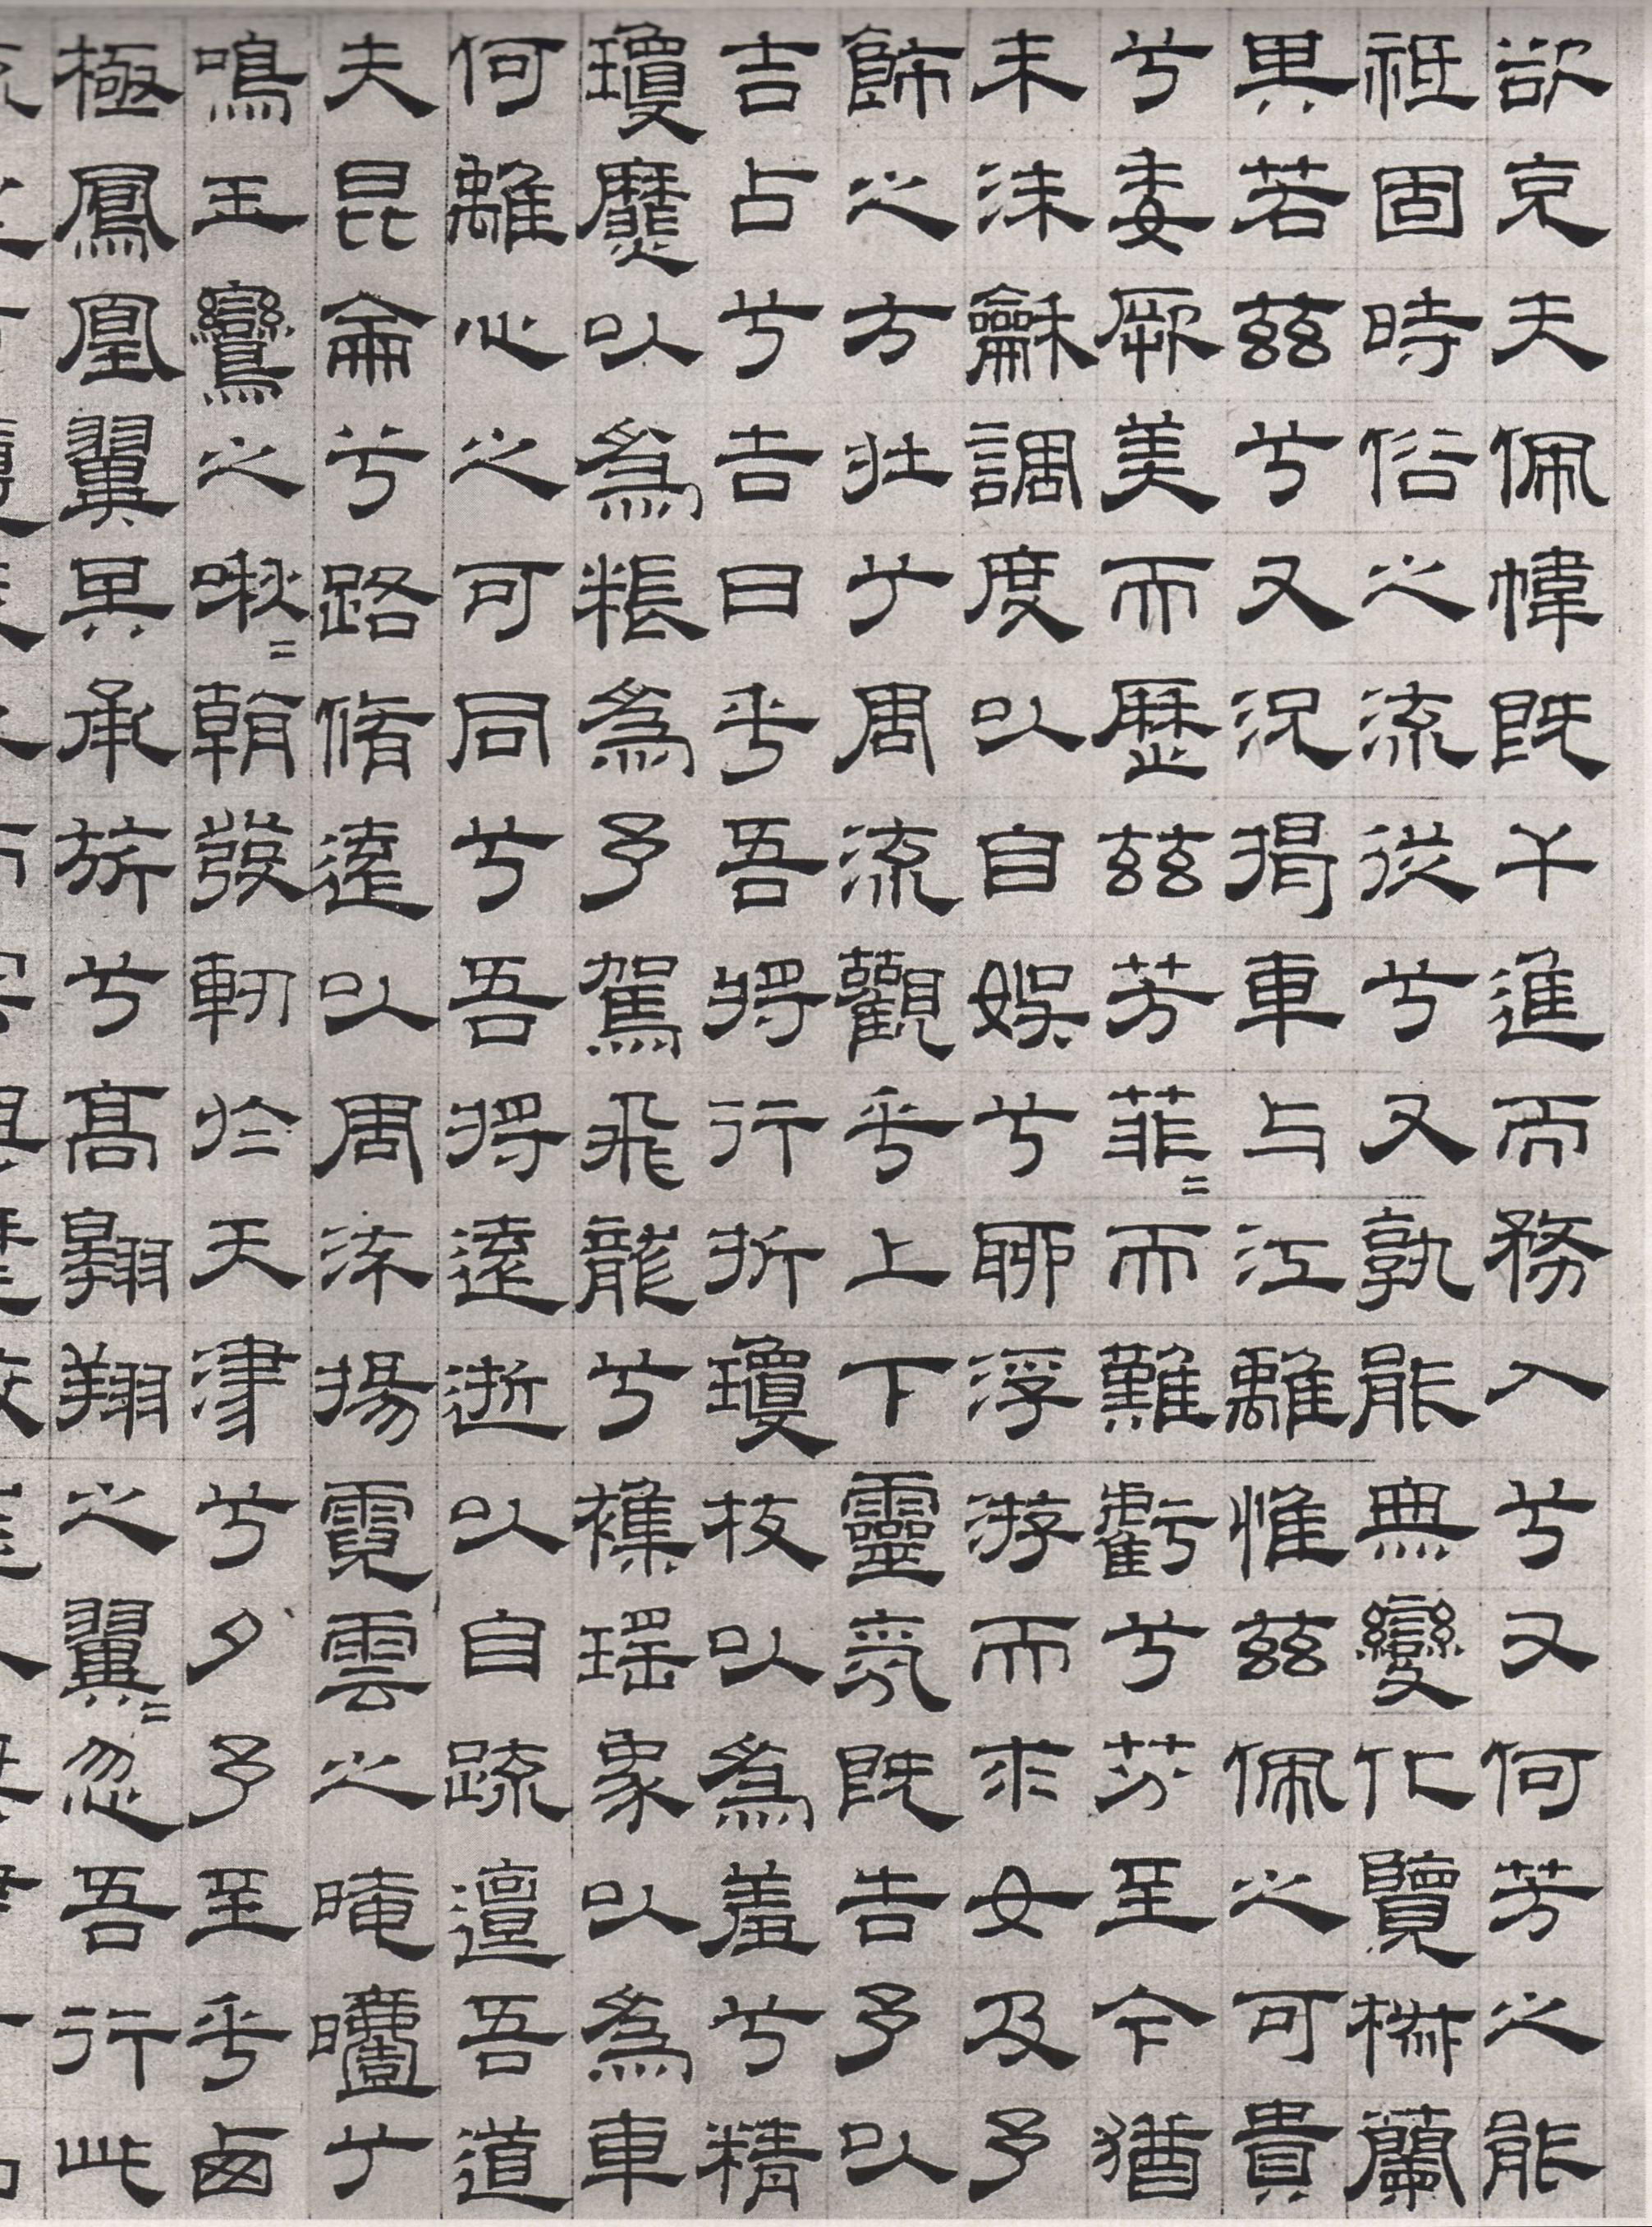 欲充夫佩幃既干進而務入兮又何芳之能
祗固時俗之流從兮又孰能無變化覽椒蘭
其若茲兮又況揭車与江離惟茲佩之可貴
兮委厥美而歷茲芳菲=而難虧兮芬至今猶
未沬龢調度以自娛兮聊浮游而求女及予
飾之方壯兮周流觀乎上下靈氛既告予以
吉占兮吉日乎吾將行折瓊枝以為羞兮精
瓊爢以為粻為予駕飛龍兮雜瑤象以為車
何離心之可同兮吾將遠逝以自疏邅吾道
夫昆侖兮路脩遠以周流揚霓雲之晻兮
鳴玉鸞之啾=朝發軔於天津兮夕予至乎西
極鳳凰翼其承旂兮高翱翔之翼=忽吾行此